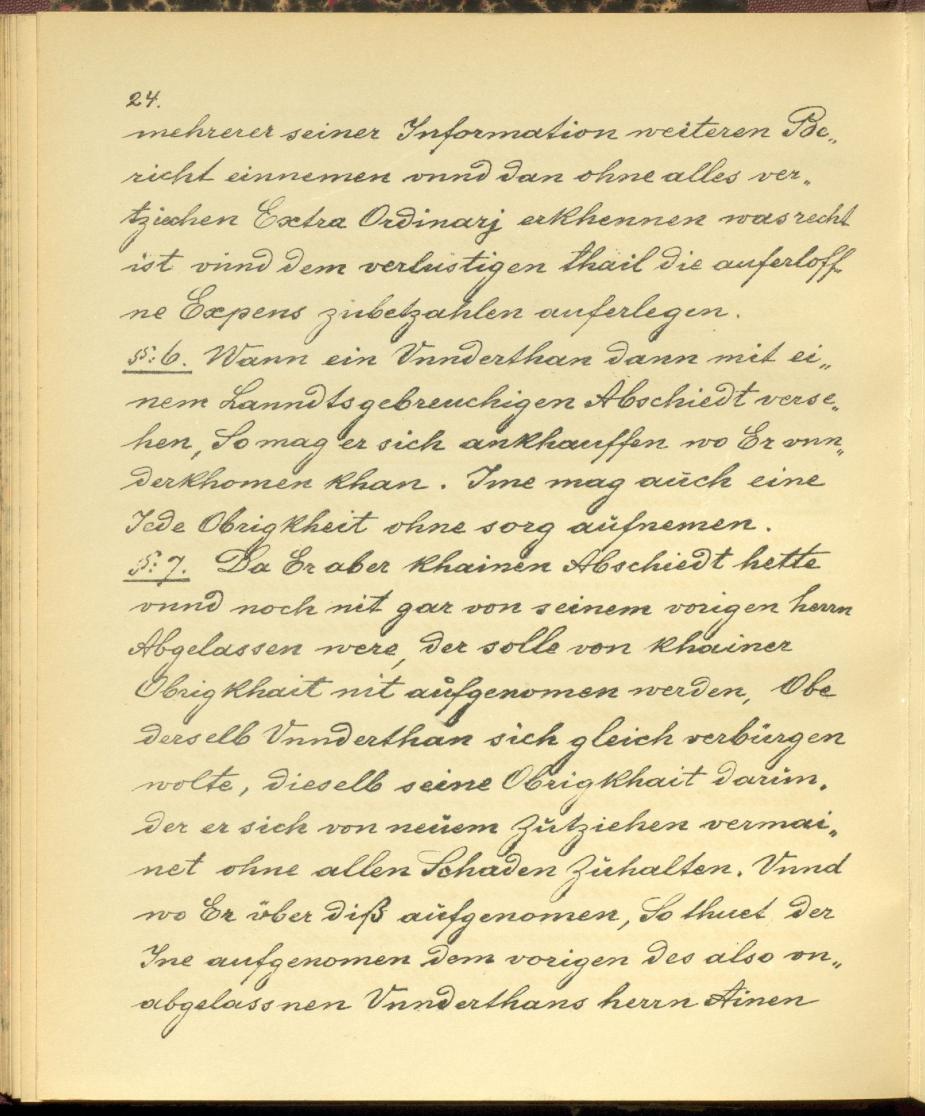 24.
mehrerer seiner Information weiteren Be„
richt einnemen vnnd dan ohne alles ver„
tziechen Extra Ordinarj erkhennen was recht
ist vnnd dem verlustigen thail die auferloff„
ne Expens zubetzahlen auferlegen.
§§:6. Wann ein Vnnderthan dann mit ei„
nem Lanndtsgebreuchigen Abschiedt verse„
hen, So mag er sich ankhauffen wo Er vnn„
derkhomen khan. Ime mag aŭch eine
Jede Obrigkheit ohne sorg aŭfnemen.
§:7. Da Er aber khainen Abschiedt hette
vnnd noch nit gar von seinem vorigen herrn
Abgelassen were, der solle von khainer
Obrigkhait nit aŭfgenomen werden, Obe
derselb Vnnderthan sich gleich verbürgen
wolte, dieselb seine Obrigkhait darŭn„
der er sich von neŭem Zŭtziehen vermai„
net ohne allen Schaden Zŭhalten. Vnnd
wo Er über diß aŭfgenomen, So thuet der
Ine aufgenomen dem vorigen des also vn„
abgelassnen Vnnderthans herrn Ainen